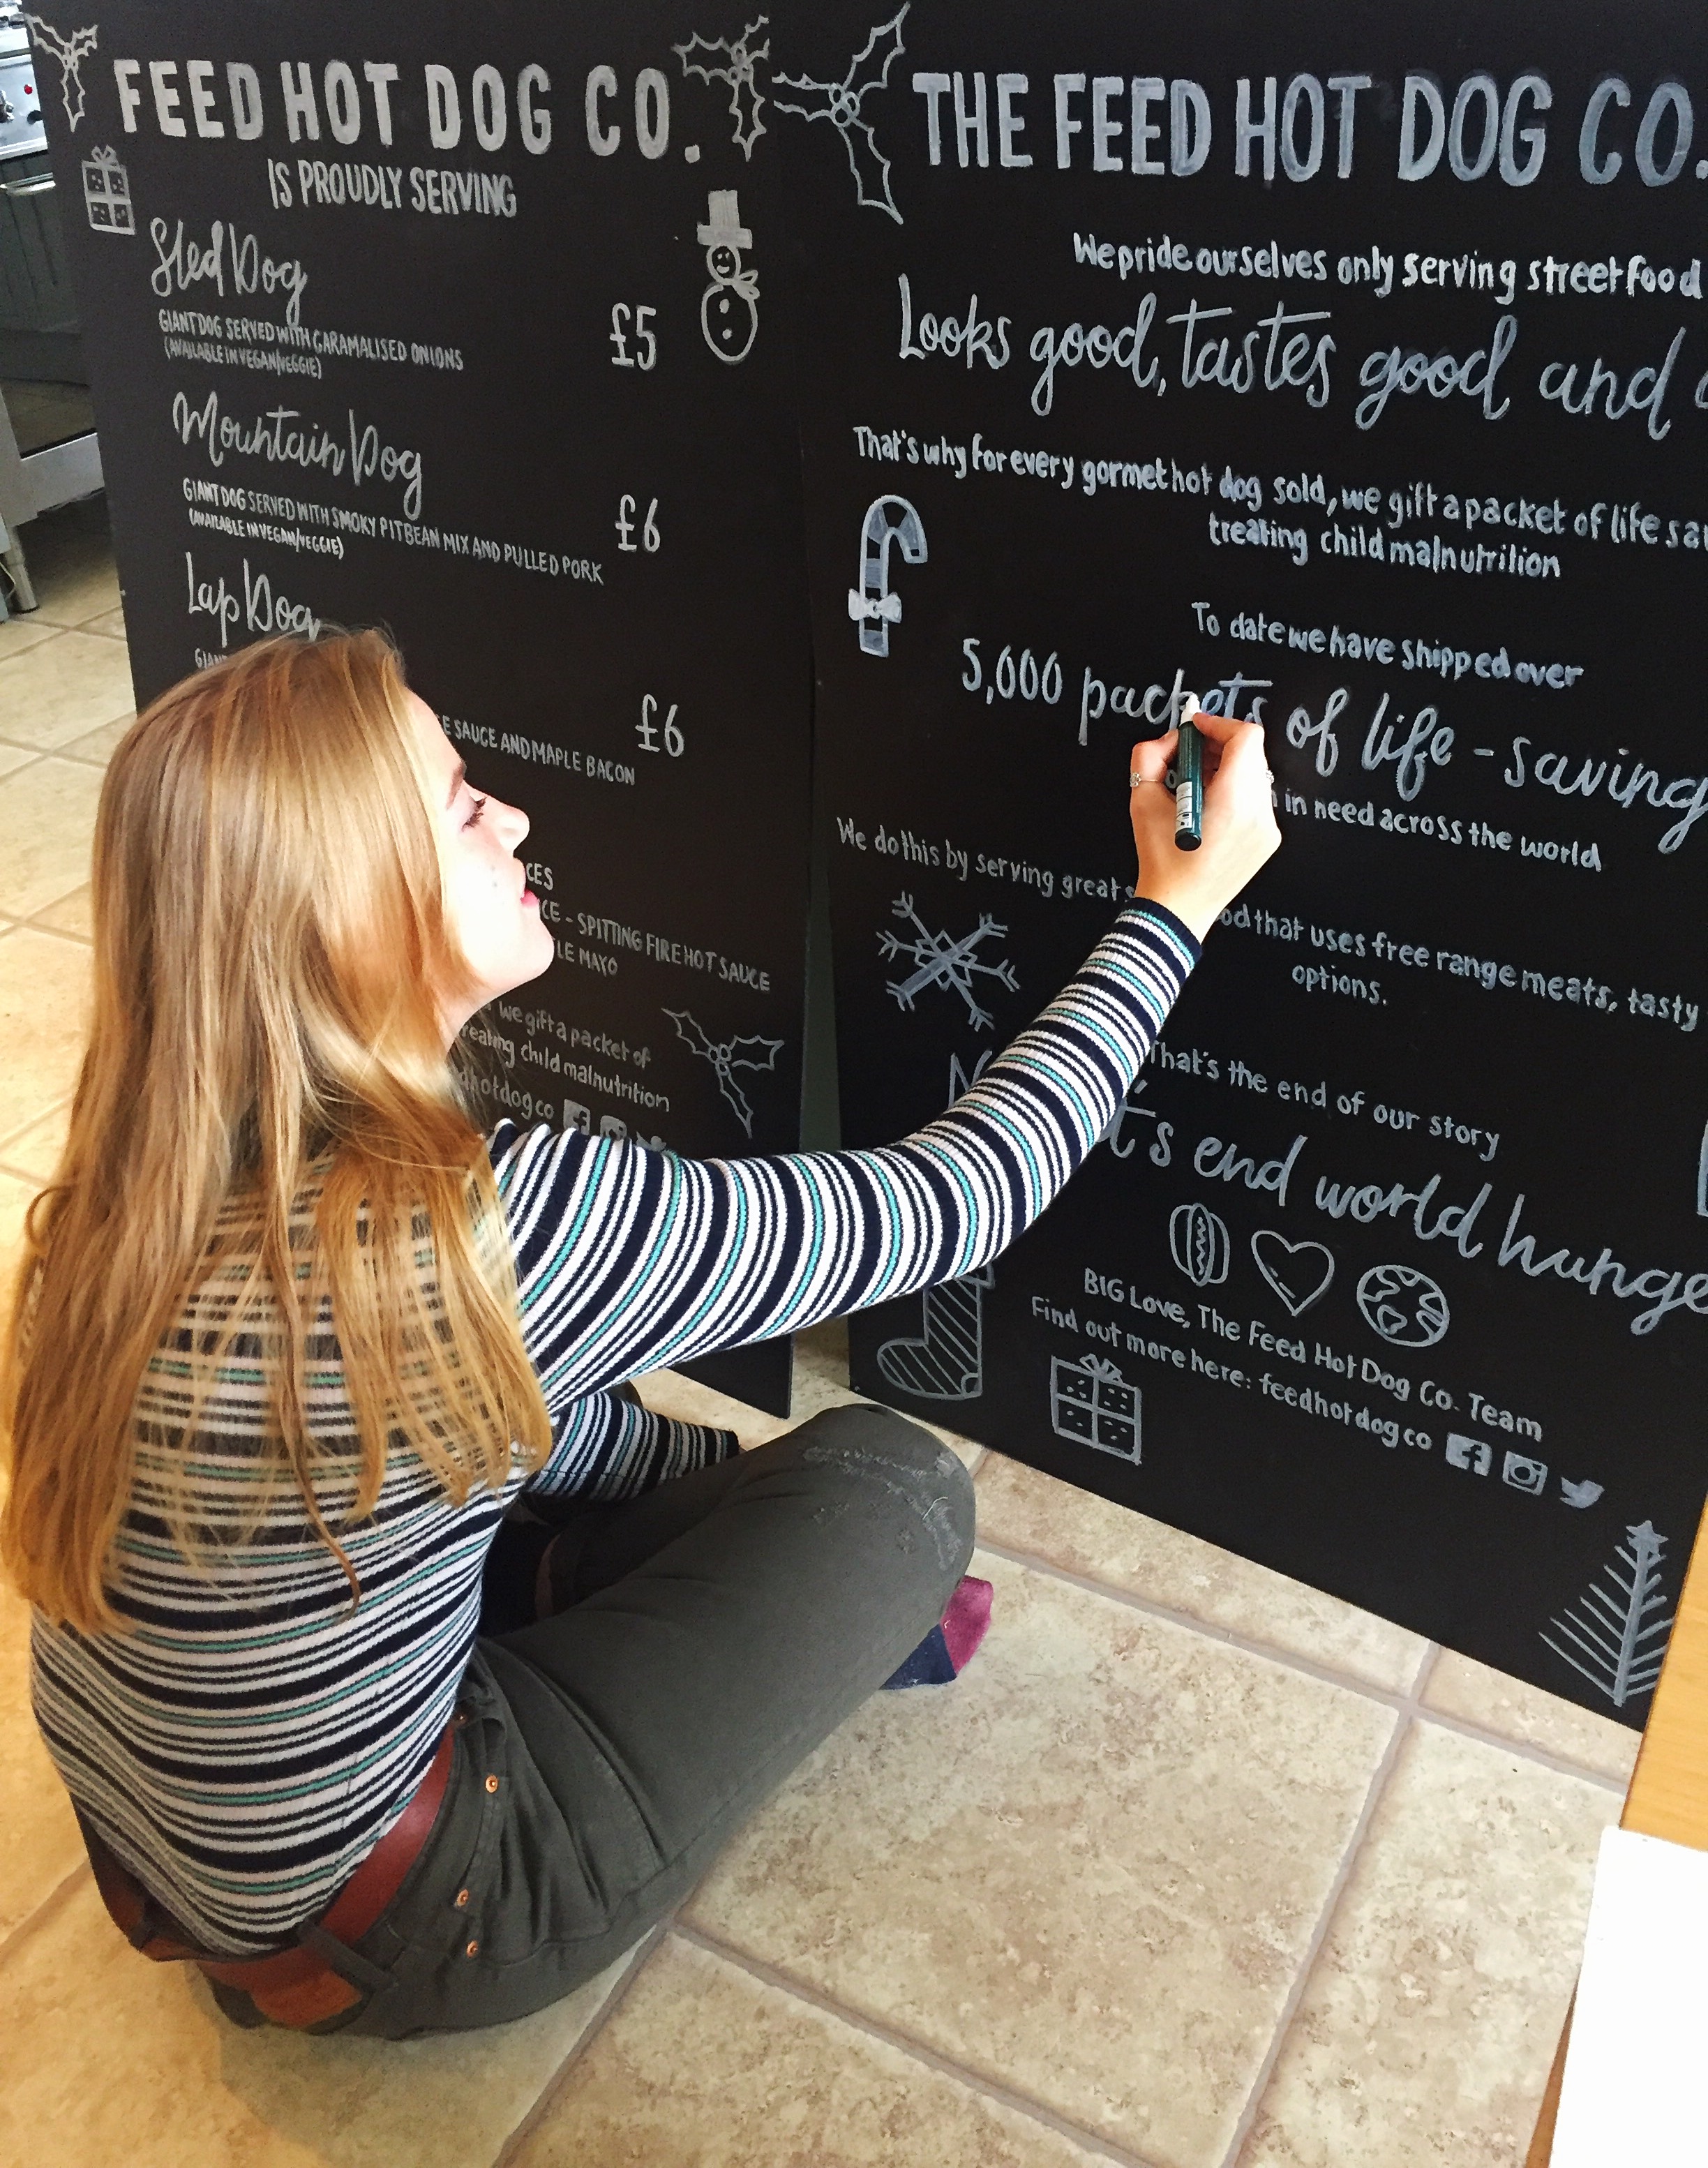 FEED HOT DOG CO.
IS PROUDLY SERVING
Sled Dog
GIANT DOG SERVED WITH CARAMALISED ONIONS
(AVAILABLE IN VEGAN/VEGGIE)
£5
Mountain Dog
GIANT DOG SERVED WITH SMOKY PITBEAN MIX AND PULLED PORK
(AVAILABLE IN VEGAN/VEGGIE)
£6
Lap Dog
SAUCE AND MAPLE BACON
£6
- SPITTING FIRE HOT SAUCE
MAYO
we gift a packet of
child malnutrition
THE FEED HOT DOG CO.
We pride ourselves only serving street food
Looks good, tastes good and
That's why for every gormet hot dog sold, we gift a packet of life
treating child malnutrition
To date we have shipped over
5,000 packets of life-saving
in need across the world
We do this by serving great
that uses free range meats, tasty
options.
That's the end of our story
end world
BIG Love, The Feed Hot Dog Co. Team
Find out more here: feedhotdogco